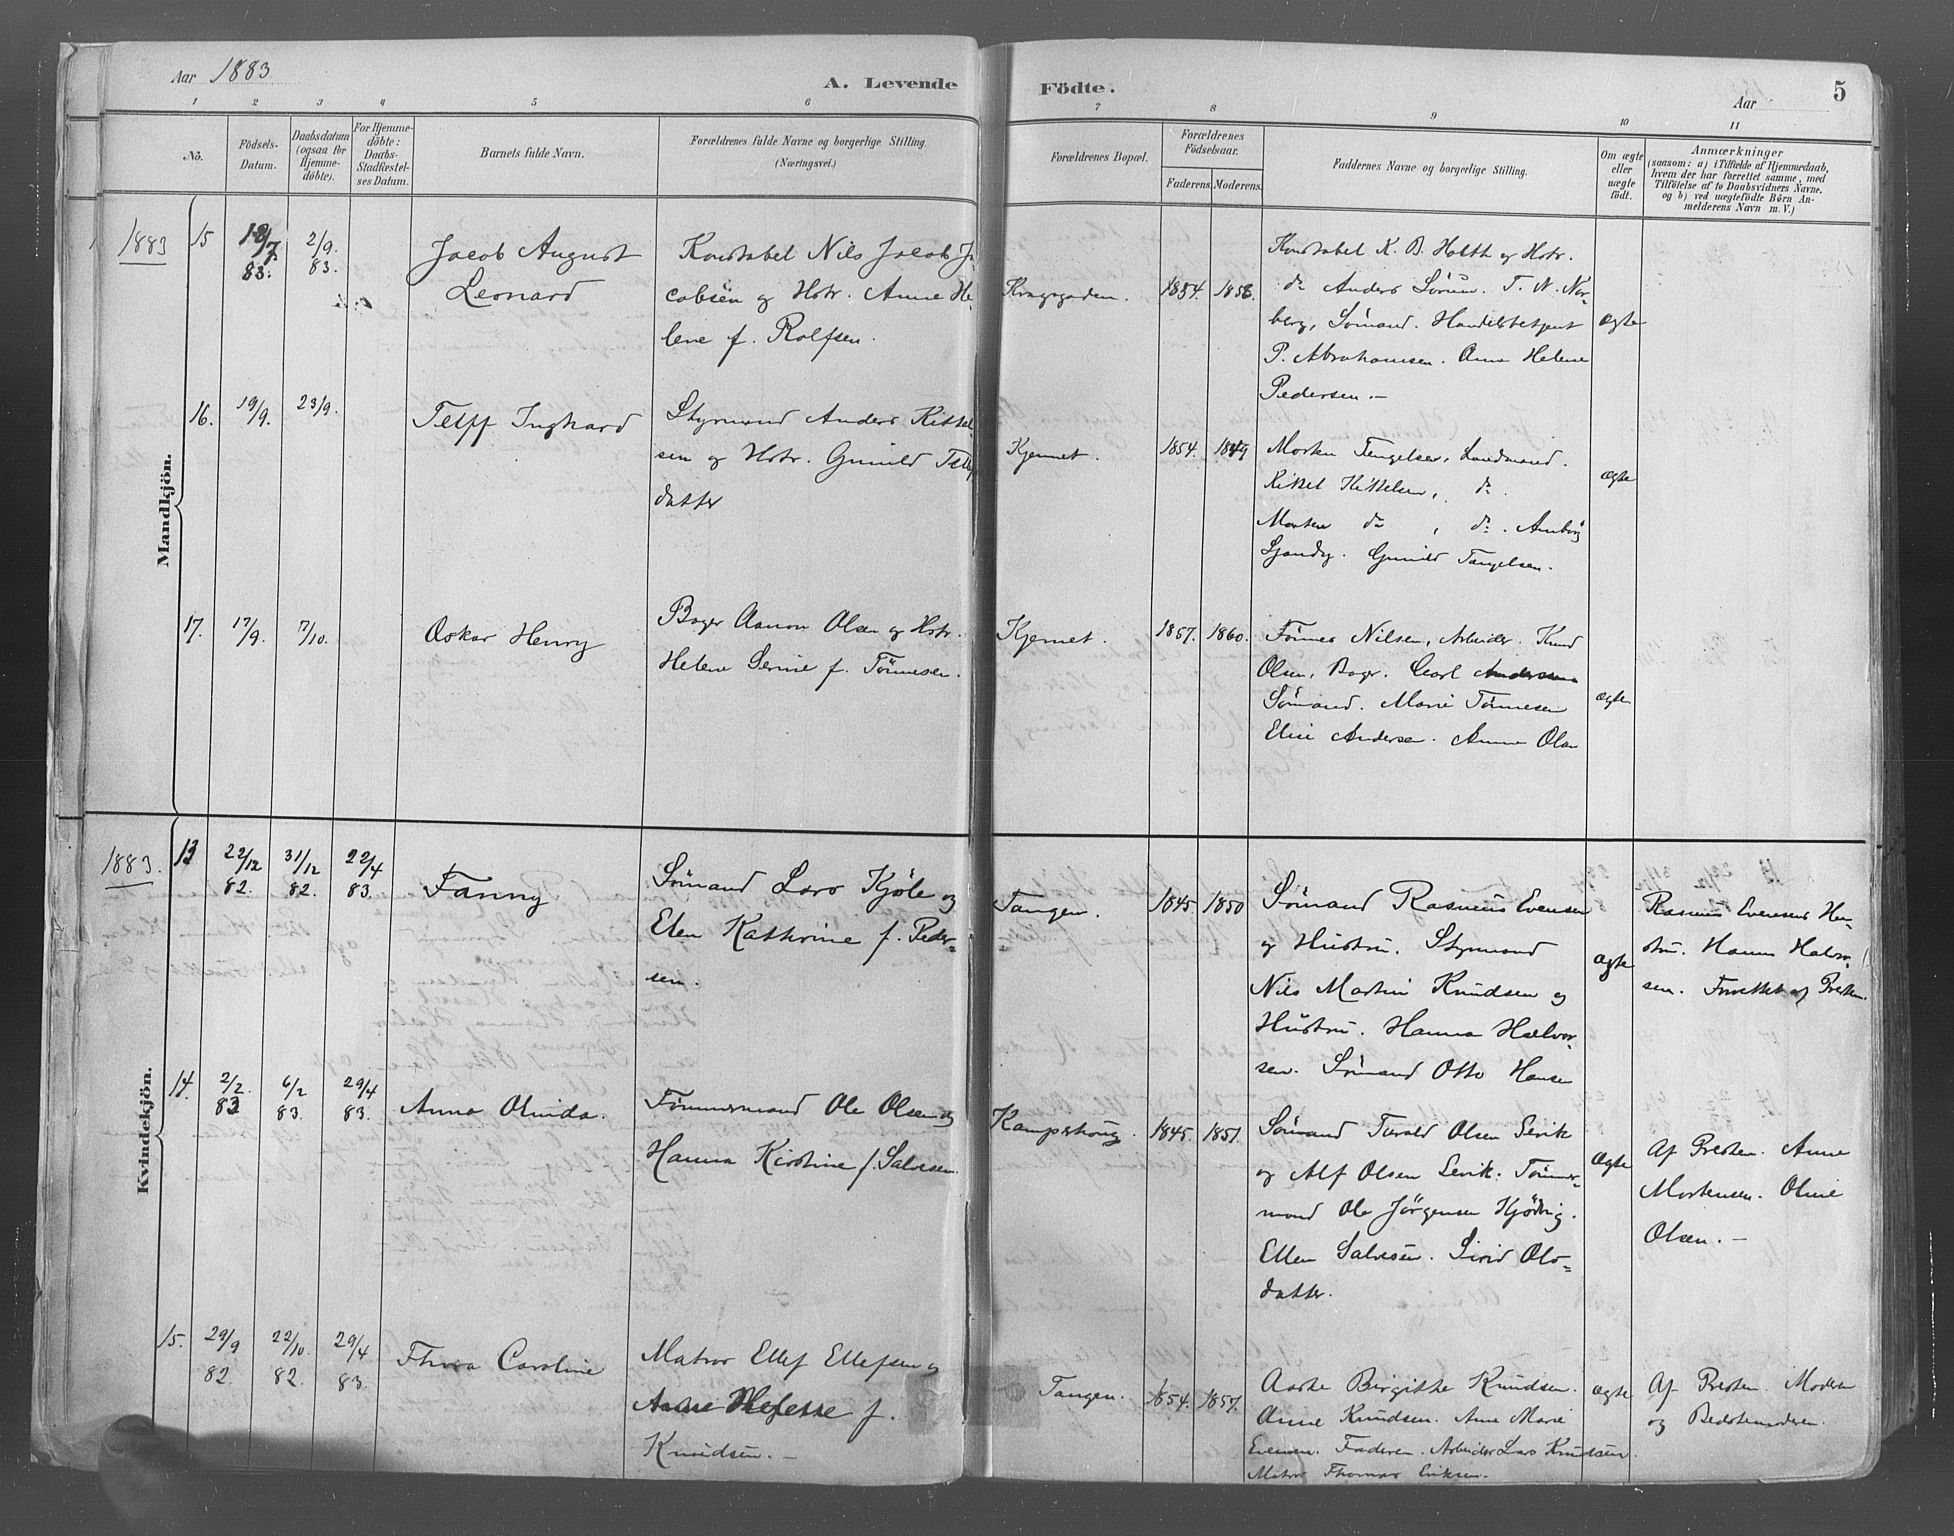 Aar 1883
A. Levende Födte.
Aar
5
1 2 3 4 5 6 7 8 9 10 11
No.
Födsels-
Datum.
Daabsdatum
(ogsaa for
Hjemme-
döbte).
For Hjemme-
döbte:
Daabs-
Stadfæstel-
ses Datum.
Barnets fulde Navn.
Forældrenes fulde Navne og borgerlige Stilling.
(Næringsvei.)
Forældrenes Bopæl.
Forældrenes
Födselsaar.
Faderens.
Moderens.
Faddernes Navne og borgerlige Stilling.
Om ægte
eller
uægte
födt.
Anmærkninger
(saasom: a) i Tilfælde af Hjemmedaab,
hvem der har forrettet samme, med
Tilföielse af to Daabsvidners Navne,
og b) ved uægtefödte Börn An-
melderens Navn m. V.)
Mandkjön.
1883
15
18/7
83.
2/9.
83.
Jacob August
Leonard
Konstabel Nils Jacob Ja-
cobsen og Hstr. Anne He-
lene f. Rolfsen.
Kragsgaden.
1854.
1856.
Konstabel K. B. Holth og Hstr.
do Anders Sörum. T. N. Nor-
berg, Sömand. Handelsbetjent
P. Abrahamsen. Anna Helene
Pedersen.-
ægte
16.
19/9.
23/9.
Telff Inghard
Styrmand Anders Kittel-
sen og Hstr. Gunild Telfs
datter
Kjennet.
1854.
1849
Morten Tengelsen, Landmand.
Kittel Kittelsen, do.
Morten do , do. Anborg
Gunild Tangelsen.
ægte
17.
17/9.
7/10.
Oskar Henry
Bager Aanon Olsen og Hstr.
Helene Serine f. Tönnesen.
Kjennet.
1857.
1860.
Tönnes Nilsen, Arbeider. Knud
Olsen, Bager. Carl Andersen
Sömand. Marie Tönnesen
Elise Andersen. Anne Olsen
ægte
Kvindekjön.
1883.
13
22/12
82.
31/12
82.
22/4
83.
Fanny
Sömand Lars Kjöle og
Elen Kathrine f. Peder-
sen.
Tangen.
1845
1850
Sömand Rasmus Evensen
og Hustru. Styrmand
Nils Martin Knudsen og
Hustru. Hanna Halvor-
sen. Sömand Otto Hansen
ægte
Rasmus Evensens Hu-
stru. Hanna Halvor-
sen. Forrettet af Presten.
14.
2/2.
83
6/2
83.
29/4
83.
Anna Olinda.
Tömmermand Ole Olsen og
Hanna Kirstine f. Salvesen.
1845.
1851.
Sömand Tarald Olsen Levik
og Alf Olsen Levik. Tömmer-
mand Ole Jörgensen Kjödvig.
Ellen Salvesen. Sirid Ols-
datter.
ægte
Af Presten. Anne
Mortensen. Oline
Olsen.-
15.
29/9
82.
22/10.
82.
29/4
83.
Thora Caroline
Matros Ellef Ellefsen og
Anne f.
Knudsen.-
Tangen.
1854.
1857.
Aaste Birgithe Knudsen.
Anne Knudsen. Anne Marie
Evensen. Faderen. Arbeider Lars Knudsen.
Matros Thomas Eriksen.
ægte
Af Presten. Moderen
og Bedstemoderen.